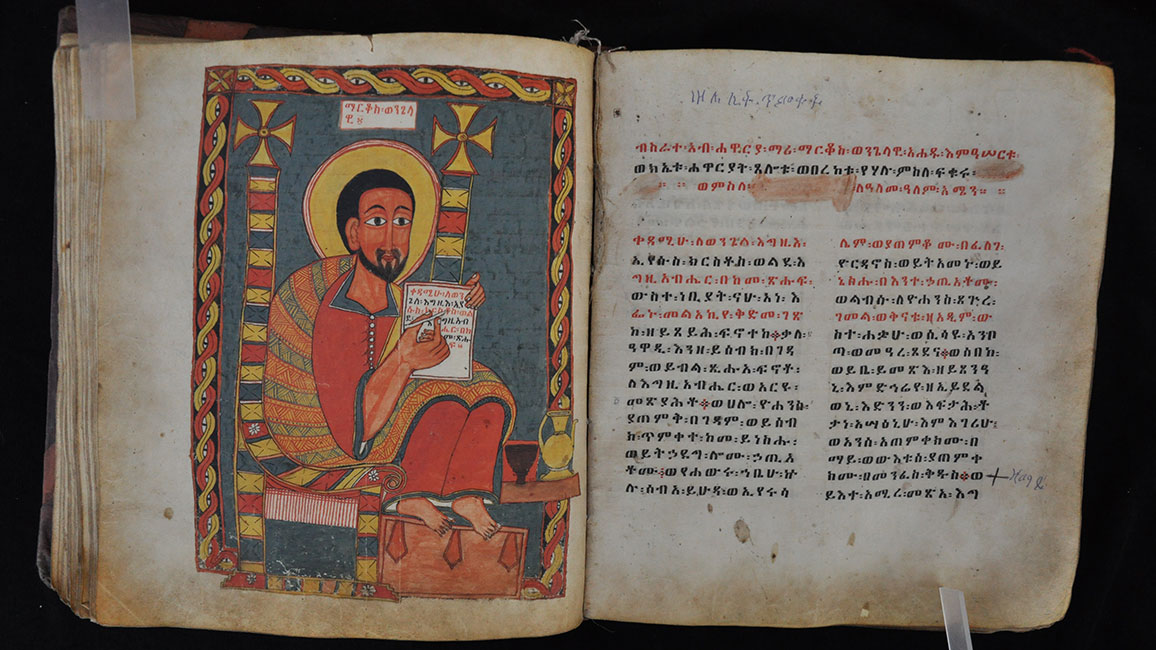 ማርቆስ፡ወንጌላ
ዊ።
ቀዳሚሁ፡ለወን
ጌለ፡እግዚእ፡ኢየ
ሱስ፡ክርስቶስ፡ወል
እግዚአብ
ሔር፡በከ
መ፡ጽሑ
ፍ።
ብስራተ፡አብ፡ሐዋርያ፡ማሪ፡ማርቆስ፡ወንጌላዊ፡አሐዱ፡እምዓሠርቱ፡
ወክኤቱ፡ሐዋርያት፡ጸሎቱ፡ወበረከቱ፡የሃሉ፡ምስለ፡ፍቁሩ፡
ወምስለ፡ ለዓለመ፡ዓለም፡አሜን።
ቀዳሚሁ፡ለወንጌለ፡እግዚእ፡
ኢየሱስ፡ክርስቶስ፡ወልደ፡እ
ግዚአብሔር፡በከመ፡ጽሑፍ፡
ውስተ፡ነቢያት፡ናሁ፡አነ፡እ
ፌኑ፡መልአኪየ፡ቅድመ፡ገጽ
ከ፡ዘይጸይሕ፡ፍኖተከ።ቃለ፡
ዓዋዲ፡እንዘ፡ይሰብክ፡በገዳ
ም፡ወይብል፡ጺሑ፡ፍኖቶ፡
ለእግዚአብሔር፡ወአርዩ፡
መጽያሕቶ።ወሀሎ፡ዮሐንስ፡
ያጠምቅ፡በገዳም፡ወይሰብ
ክ፡ጥምቀተ፡ከመ፡ይነስሑ፡
ወይትኀደግ፡ሎሙ፡ኃጢአ
ቶሙ።ወየሐውሩ፡ኀቤሁ፡ኵ
ሉ፡ሰብአ፡ይሁዳ፡ወኢየሩሳ
ሌም፡ወያጠምቆሙ፡በፈለገ፡
ዮርዳኖስ፡ወይትአመኑ፡ወይ
ኔስሑ፡በእንተ፡ኃጢአቶሙ፡
ወልብሱ፡ለዮሐንስ፡ጸጕረ፡
ገመል፡ወቅናቱ፡ዘአዲም፡ው
ስተ፡ሐቋሁ፡ወሲሳዩ፡አንበ
ጣ፡ወመዓረ፡ጸደና።ወሰበከ፡
ወይቤ፡ይመጽእ፡ዘይጸንዓ
ኒ፡እምድኅሬየ፡ዘኢይደል
ወኒ፡እድንን፡ወእፍታሕ፡ቶ
ታነ፡አሣእኒሁ፡እምእገሪሁ፡
ወአንሰ፡አጠምቀክሙ፡በ
ማይ፡ወውእቱሰ፡ያጠምቀ
ክሙ፡በመንፈስ፡ቅዱስ።ወ
ይእተ፡አሚረ፡መጽአ፡እግ